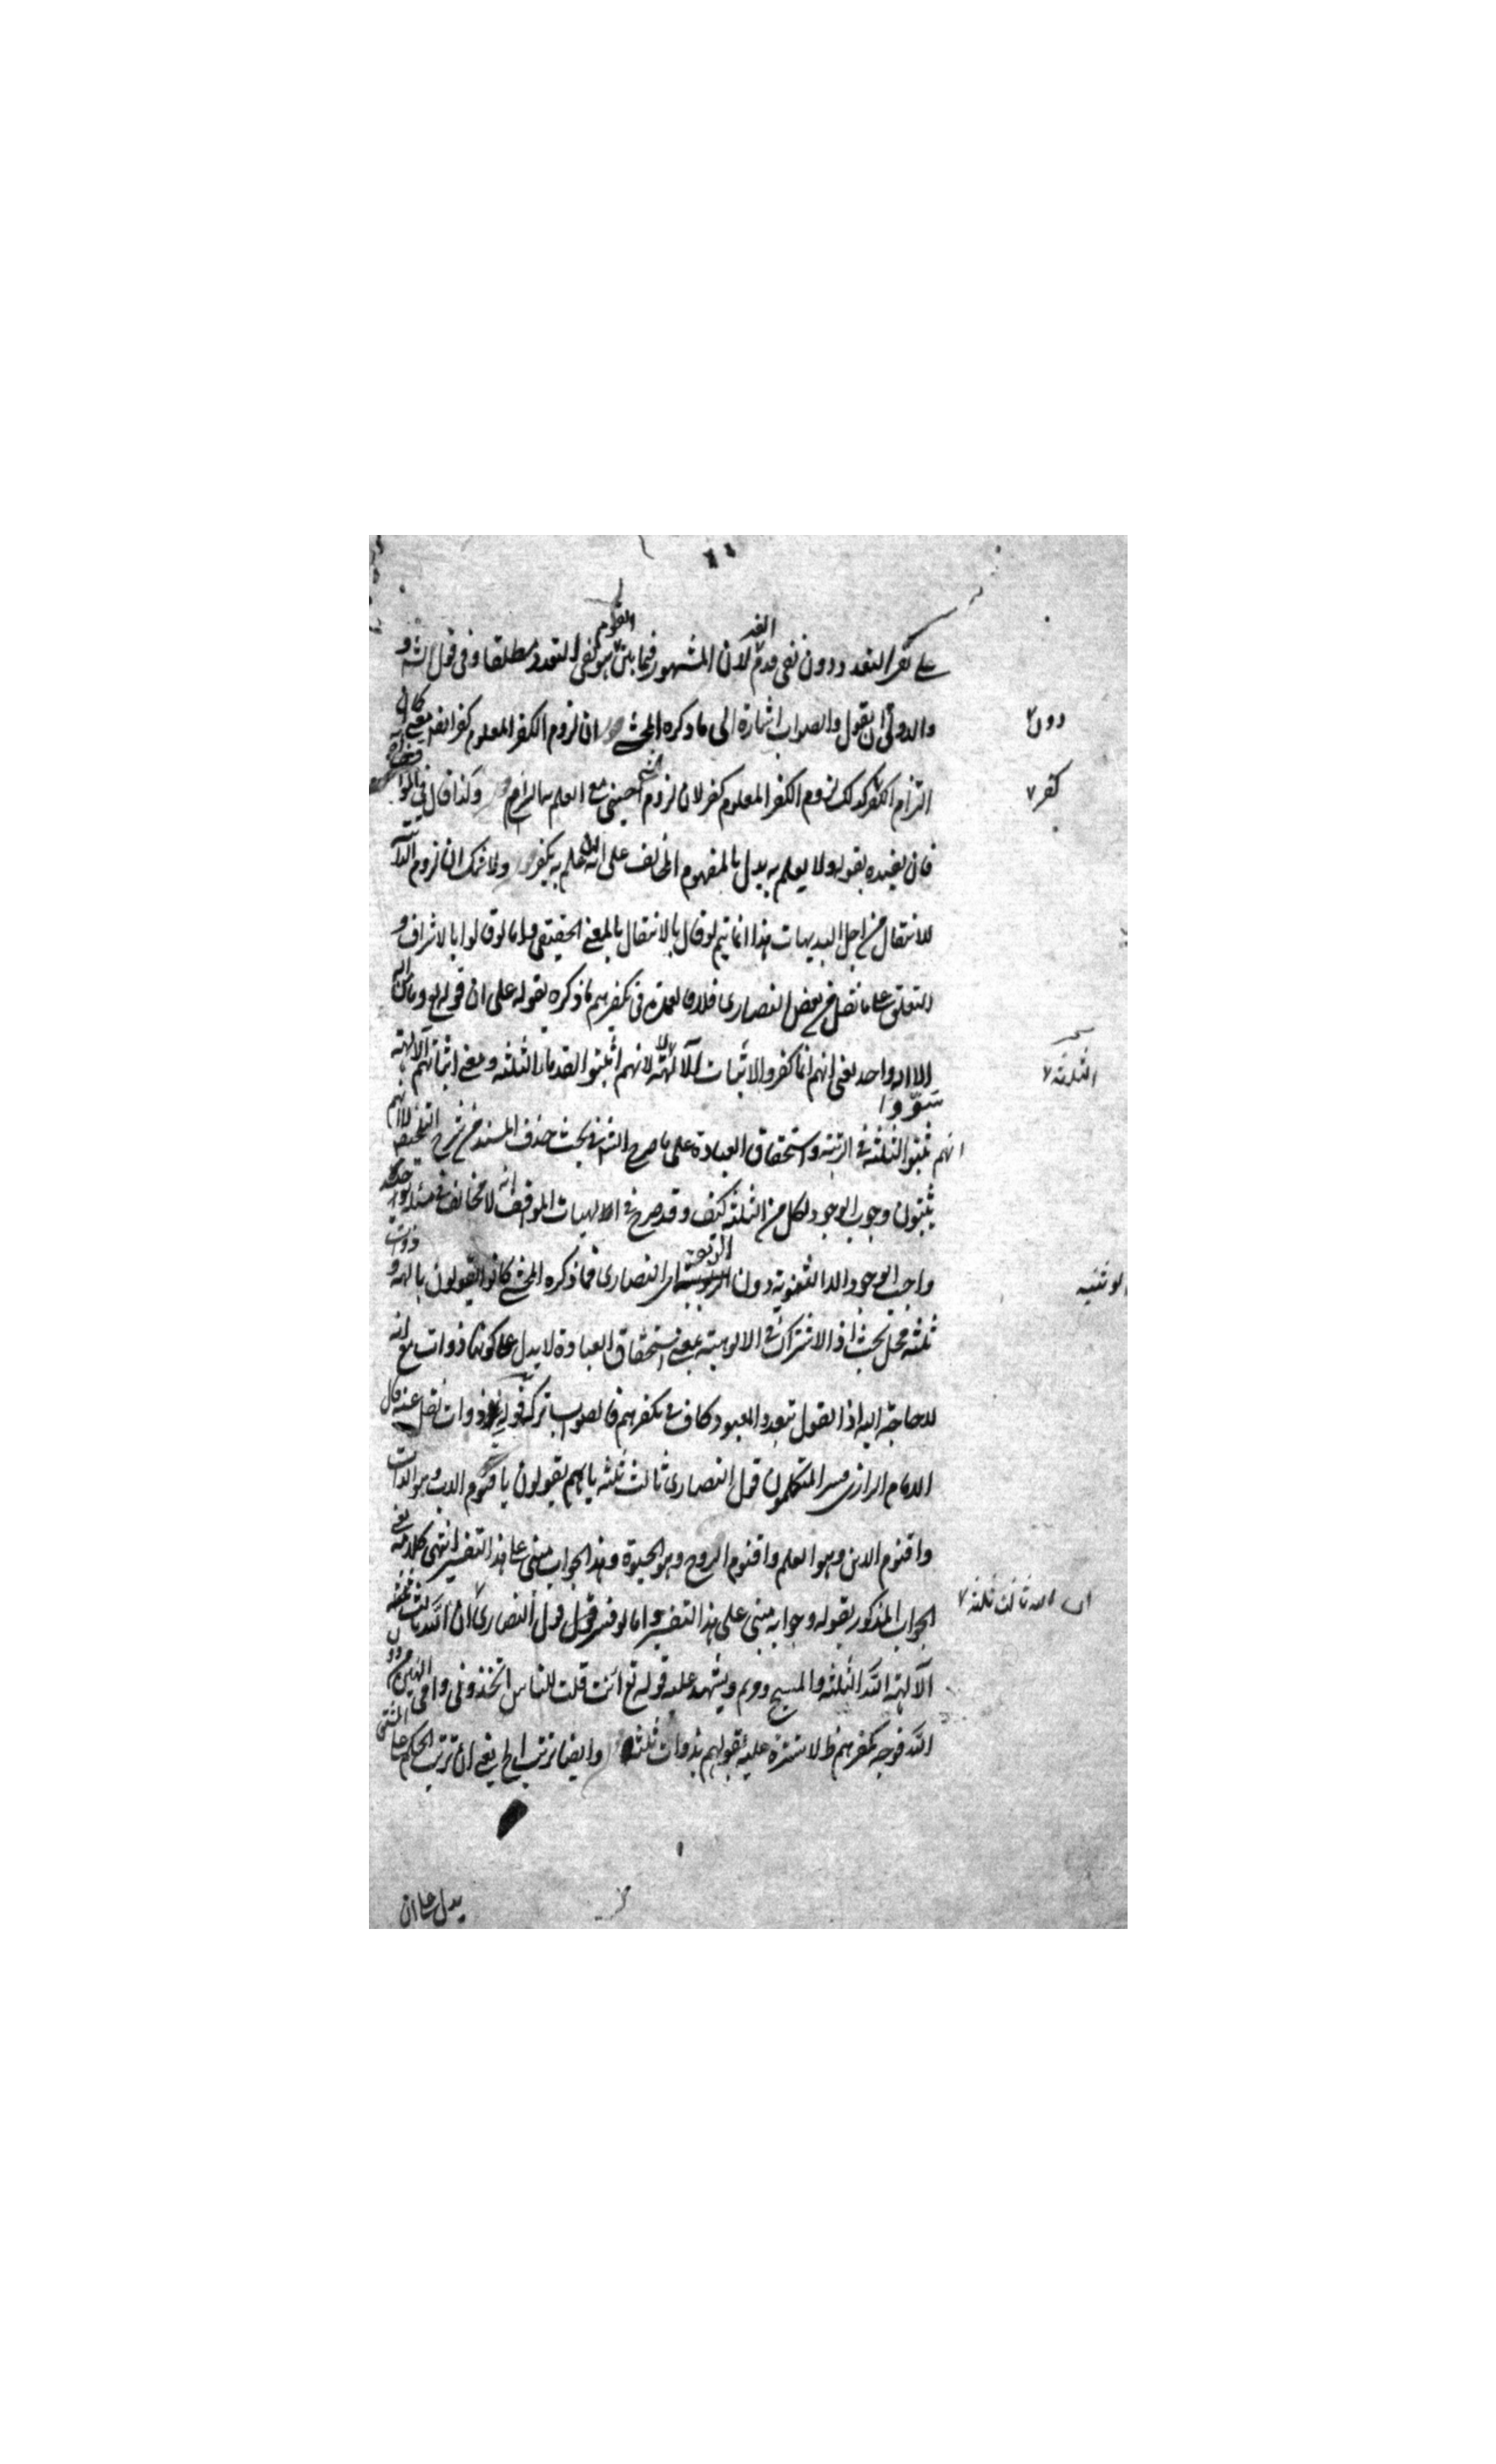 على نفى التعدد دون نفى قدم الغير لان المشهور فيما بين القوم هو نفى التعدد مطلقا وفى قول الش
والاولى ان يقول والصواب اشارة الى ما ذكره المحشى ان لزوم الكفر المعلوم كفر ايضا يعنى كما ان
دون
التزام الكفر كفر كذلك لزوم الكفر المعلوم كفر لان لزوم الشئ مع العلم به التزام وكذا قال فى المواقف
كفر
فان تقييده بقوله ولا يعلم به يدل بالمفهوم المخالف على انه ان علم به يكفر ولا شك ان لزوم
للانتقال من اجل البديهيات هذا انما يتم لو قال بالانتقال بالمعنى الحقيقى واما لو قالوا بالاشراف و
التعلق على ما نقل من بعض النصارى فلا فالعمدة فى تكفرهم ما ذكره بقوله على ان قوله تع وما من اله
الا اله واحد يعنى انهم انما كفروا لاثبات الآلهة لا لانهم اثبتوا القدماء الثلثة ومعنى اثباتهم الآلهة
الثلثة
سوّوا
انهم الثلثة فى الرتبة واستحقاق العبادة على ما صرح الش فى بحث حذف المسند من شرح التلخيص لا انهم
يثبتون وجوب الوجود لكل من الثلثة كيف وقد صرح فى الالهيات المواقف انه لا مخالف فى مسئلة توحيد
واجب الوجود الا الثنوية دون الوثنية اى النصارى فما ذكره المحشى كانوا يقولون بآلهة ذوات
الوثنية
ثلثة محل بحث اذ الاشتراك فى الالوهية بمعنى استحقاق العبادة لا يدل على كونها ذوات مع انه
لا حاجة اليه اذ القول بتعدد المعبود كاف فى تكفرهم فالصواب ترك قوله ذوات نقل عنه قال
الامام الرازى فسر المتكلمون قول النصارى ثالث ثلثة بانهم يقولون باقنوم الاب وهو الذات
واقنوم الابن وهو العلم واقنوم الروح وهو الحيوة وهذا الجواب مبنى على هذا التفسير انتهى كلامه يعنى
الجواب المذكور بقوله وجوابه مبنى على هذا التفسير واما لو فسر قول النصارى ان الله ثالث ثلثة
ان الله ثالث ثلثة
الآلهة الثلثة الله والمسيح ومريم ويشهد عليه قوله تع أانت قلت للناس اتخذونى وامى الهين من دون
الله فوجه تكفرهم ظ لا سترة عليه لقولهم بذوات ثلثة وايضا ترتب الخ يعنى ان ترتب الحكم على المشتق
يدل على ان